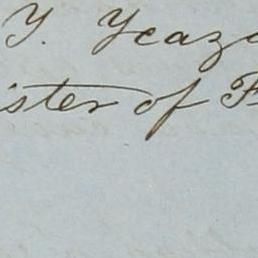 Y. Yeaz
ister of F